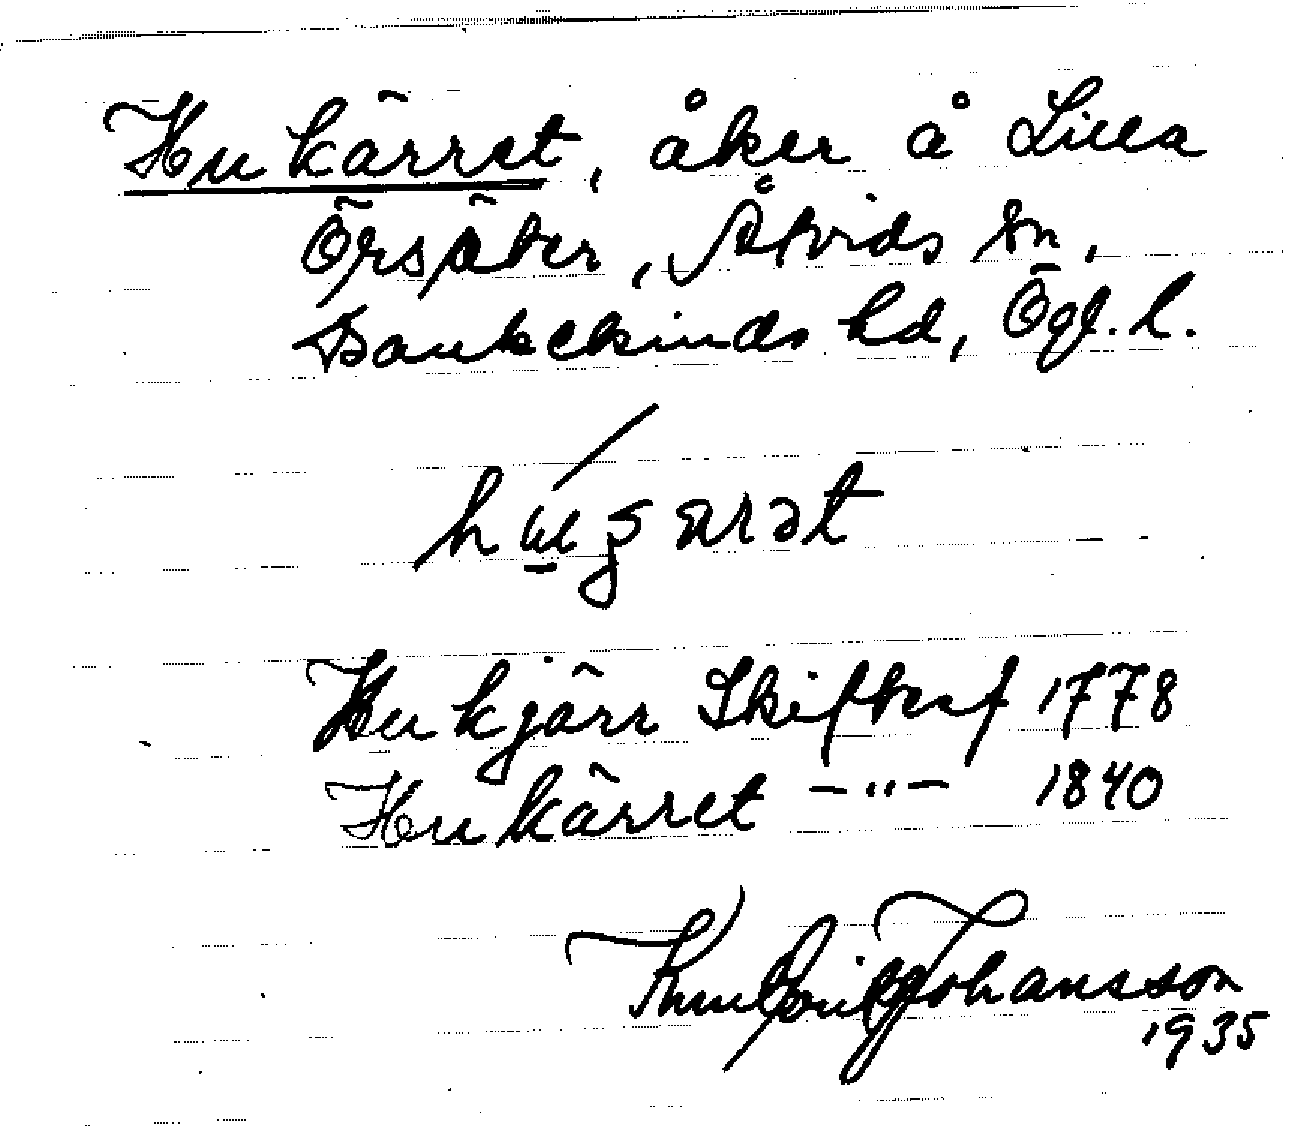 Hukärret, åker å Lilla
Örsäter, Åtvids sn,
Bankekinds hd, Ögl. l.
Hukjärr Skiftesf 1778
Hukärret -"- 1840
Johansson
1935